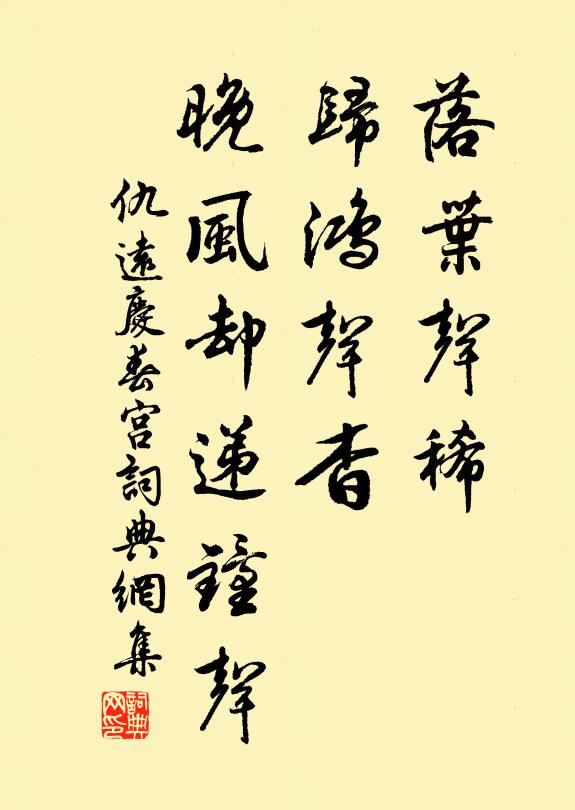 落葉聲稀
歸鴻聲杳
晚風却递鐘聲
仇遠慶春宮詞典網集
詞典网印